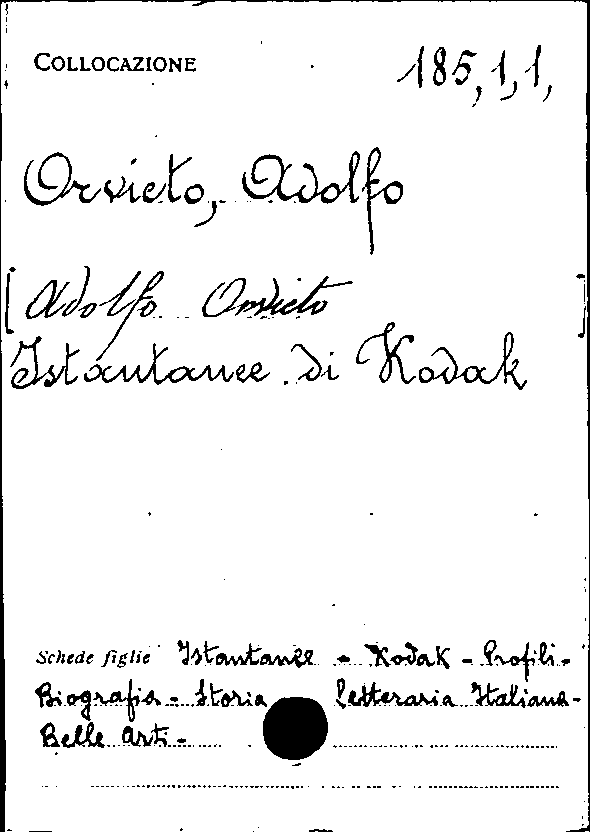 COLLOCAZIONE 185,1,1,
Orvieto, Adolfo
[Adolfo Orvieto]
Istantanee di Kodak
Schede figlie Istantanee - Kodak - Profili -
Biografia - Storia Letteraria Italiana -
Belle Arti -